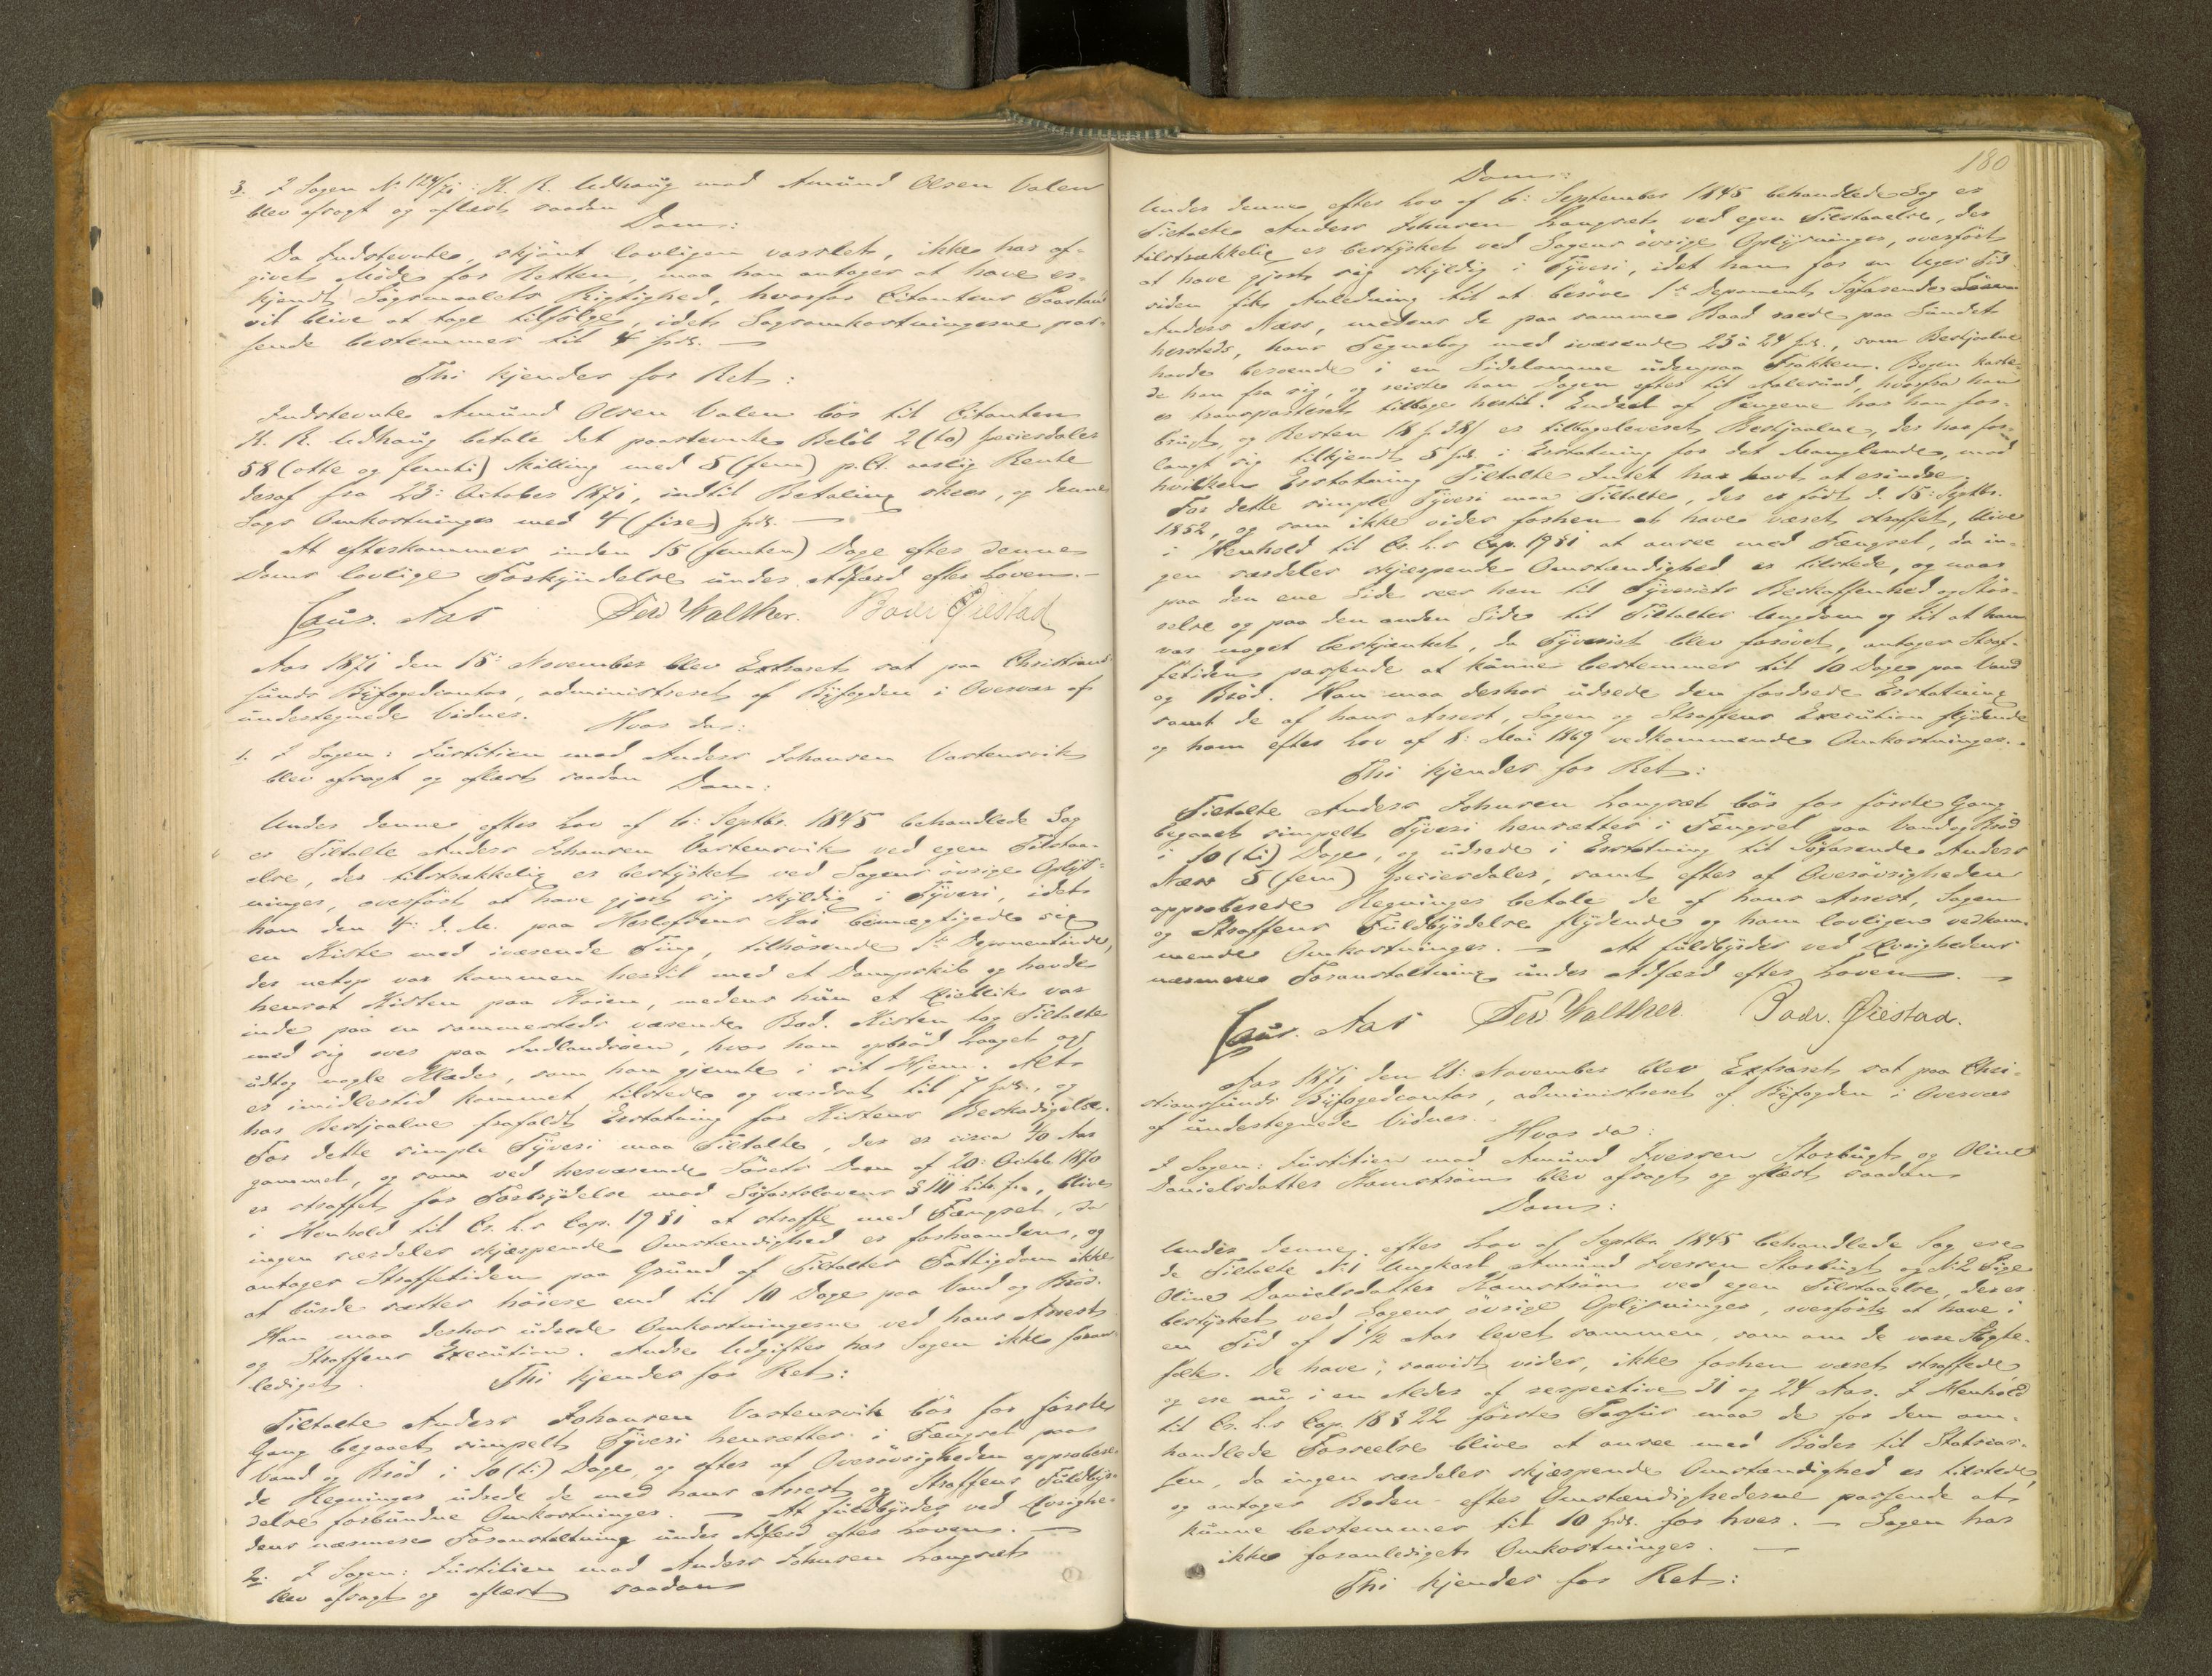 3. I Sagen No 124/71: K. R. Udhaug mod Amund Olsen Valen
blev afsagt og oplæst saadan
Dom:
Da Indstevnte, skjönt lovligen varslet, ikke har af-
givet Möde for Retten, maa han antages at have er-
kjendt Sögsmaalets Rigtighed, hvorfor Citantens Paastand
vil blive at tage tilfölge, idet Sagsomkostningerne pas-
sende bestemmes til 4 spd. —
Thi kjendes for Ret:
Indstevnte Amund Olsen Valen bör til Citanten
K. R. Udhaug betale det paastevnte Belöb 2 (to) speciesdaler
58 (otte og femti) Skilling med 5 (fem) p.Ct. aarlig Rente
deraf fra 23: October 1871, indtil Betaling skeer, og denne
Sags Omkostninger med 4 (fire) spd. —
At efterkommes inden 15 (femten) Dage efter denne
Doms lovlige Forkyndelse under Adfærd efter Loven. —
Claus. Aas Ferd Walther. Bodv Øiestad
Aar 1871 den 15: November blev Extraret sat paa Christian-
sunds Byfogedcontor, administreret af Byfogden i Overvær af
undertegnede Vidner.
Hvor da:
1. I Sagen: Justitien mod Anders Johansen Vartensvik
blev afsagt og oplæst saadan
Dom:
Under denne efter Lov af 6: Septbr. 1845 behandlede Sag
er Tiltalte Anders Johansen Vartensvik ved egen Tilstaa-
else, der tilstrækkelig er bestyrket ved Sagens övrige Oplys-
ninger, overfört at have gjort sig skyldig i Tyveri, idet
han den 4: d. M. paa Kai bemægtigede sig
en Kiste med iværende Töi, tilhörende 1ste Deponentinde,
der netop var kommen hertil med et Dampskib og havde
hensat Kisten paa Kaien, medens hun et Øieblik var
inde paa en sammesteds værende Bod. Kisten tog Tiltalte
med sig over paa Indlandsöen, hvor han opbröd Laaget og
udtog nogle Klæder, som han gjemte i sit Hjem. Alt
er imidlertid kommet tilstede og værdsat til 7 spd., og
har Bestjaalne frafaldt Erstatning for Kistens Beskadigelse.
For dette simple Tyveri maa Tiltalte, der er circa 40 Aar
gammel, og som ved herværende Söretts Dom af 20: Octob. 1870
er straffet for Forbrydelse mod Söfartslovens § 111 Litr. , blive
i Henhold til Cr. L.s Cap. 19 § 1 at straffe med Fængsel, da
ingen særdeles skjærpende Omstændighed er forhaanden, og
antages Straffetiden paa Grund af Tiltaltes Fattigdom ikke
at burde sættes höiere end til 10 Dage paa Vand og Bröd.
Han maa derhos udrede Omkostningerne ved hans Arrest
og Straffens Execution. Andre Udgifter har Sagen ikke foran-
lediget.
Thi kjendes for Ret:
Tiltalte Anders Johansen Vartensvik bör for förste
Gang begaaet simpelt Tyveri hensættes i Fængsel paa
Vand og Bröd i 10 (ti) Dage, og efter af Overövrigheden approbere-
de Regninger udrede de med hans Arrest og Straffens Fuldbyr-
delse forbundne Omkostninger. — At fuldbyrdes ved Øvrighe-
dens nærmere Foranstaltning under Adfærd efter Loven. —
2. I Sagen: Justitien mod Anders Johnsen Langsæt
blev afsagt og oplæst saadan
180
Dom:
Under denne efter Lov af 6: September 1845 behandlede Sag er
Tiltalte Anders Johnsen Langsæt ved egen Tilstaaelse, der
tilstrækkelig er bestyrket ved Sagens övrige Oplysninger, overfört
at have gjort sig skyldig i Tyveri, idet han for en Uges Tid
siden fik Anledning til at beröve 1ste Deponent, Söfarende
Anders Næss, medens de paa samme Baad roede paa Sundet
hersteds, hans Tegnebog med iværende 23 à 24 spd., som Bestjaalne
havde beroende i en Sidelomme udenpaa Frakken. Bogen kaste-
de han fra sig, og reiste han Dagen efter til Aalesund, hvorfra han
er transporteret tilbage hertil. Endeel af Pengene har han for-
brugt, og Resten 18 p 38 s er tilbageleveret Bestjaalne, der har for-
langt sig tilkjendt 5 spd. i Erstatning for det Manglende, mod
hvilken Erstatning Tiltalte Intet har havt at erindre.
For dette simple Tyveri maa Tiltalte, der er födt d. 15: Septbr.
1852, og som ikke vides forhen at have været straffet, blive
i Henhold til Cr. L.s Cap. 19 § 1 at ansee med Fængsel, da in-
gen særdeles skjærpende Omstændighed er tilstede, og naar
paa den ene Side sees hen til Tyveriets Beskaffenhed og Stör-
relse og paa den anden Side til Tiltaltes Ungdom og til at han
var noget beskjænket, da Tyveriet blev forövet, antages Straf-
fetiden passende at kunne bestemmes til 10 Dage paa Vand
og Bröd. Han maa derhos udrede den fordrede Erstatning
samt de af hans Arrest, Sagen og Straffens Execution flydende
og ham efter Lov af 8: Mai 1869 vedkommende Omkostninger. -
Thi kjendes for Ret:
Tiltalte Anders Johnsen Langsæt bör for förste Gang
begaaet simpelt Tyveri hensættes i Fængsel paa Vand og Bröd
i 10 (ti) Dage, og udrede i Erstatning til Söfarende Anders
Næss 5 (fem) Speciesdaler, samt efter af Overövrigheden
approberede Regninger betale de af hans Arrest, Sagen
og Straffens Fuldbyrdelse flydende og ham lovligen vedkom-
mende Omkostninger. — At fuldbyrdes ved Øvrighedens
nærmere Foranstaltning under Adfærd efter Loven. —
Claus. Aas Ferd Walther. Bodv. Øiestad.
Aar 1871 den 21: November blev Extraret sat paa Chri-
stiansunds Byfogedcontor, administreret af Byfogden i Overvær
af undertegnede Vidner.
Hvor da:
I Sagen: Justitien mod Amund Iversen Storbugt og Oline
Danielsdatter Kamström blev afsagt og oplæst saadan
Dom:
Under denne efter Lov af Septbr. 1845 behandlede Sag ere
de Tiltalte No 1 Ungkarl Amund Iversen Storbugt og No 2 Pige
Oline Danielsdatter Kamström ved egen Tilstaaelse, der er
bestyrket ved Sagens övrige Oplysninger, overförte at have i
en Tid af 1 1/2 Aar levet sammen, som om de vare Ægte-
folk. De have, saavidt vides, ikke forhen været straffede,
og ere nu i en Alder af respective 31 og 24 Aar. I Henhold
til Cr. L.s Cap. 18 § 22 förste Passus maa de for den om-
handlede Forseelse blive at ansee med Böder til Statscas-
sen, da ingen særdeles skjærpende Omstændighed er tilstede,
og antages Boden efter Omstændighederne passende at
kunne bestemmes til 10 spd. for hver. — Sagen har
ikke foranlediget Omkostninger. —
Thi kjendes for Ret: